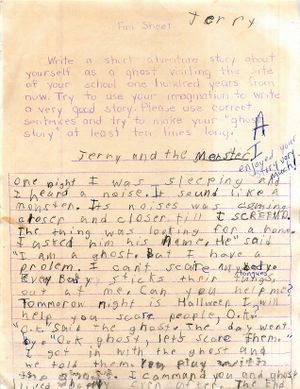 Jerry
Fun Sheet
Write a short adventure story about
yourself as a ghost visiting the site
of your school one hundred years from
now. Try to use your imagination to write
a very good story. Please use correct
sentences and try to make your "ghost
story" at least ten lines long.
A
I
enjoyed your
story very
much!
Jerry and the Monster
One night I was sleeping and
I heard a noise. It sound like a
monster. Its noises was coming
closer and closer till I SCREEMD.
The thing was looking for a home.
I asked him his name. He said
"I am a ghost. But I have a
prolem. I cant scare
Every baby sticks their tongs
tongues
out at me. Can you help me?
Tommorow night is Hallween I will
help you scare people, O.k."
"O.k." said the ghost. The day went
by. "O.k ghost, let's scare them."
I got in with the ghost and
we told them. You play with
I command you and ghost
The End